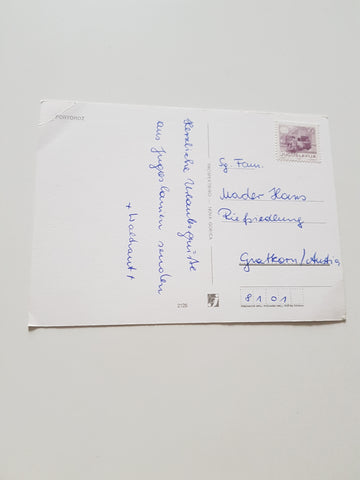 PORTOROŽ
Herzliche Urlaubsgrüße
aus Jugoslawien senden
JUGOSLAVIJA
Fam.
Mader Hans
Riefsiedlung
Gratkorn/Austria
8101
2126